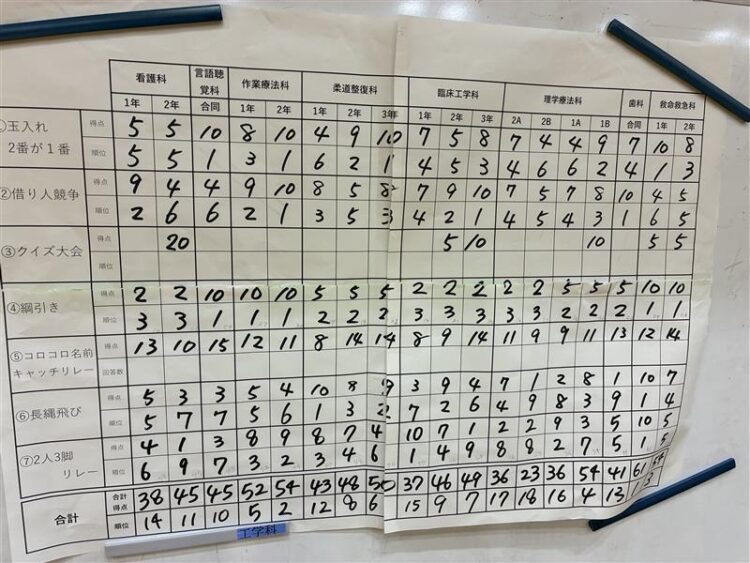 看護科 言語聴覚科 作業療法科 柔道整復科 臨床工学科 理学療法科 歯科 救命救急科
1年 2年 合同 1年 2年 1年 2年 3年 1年 2年 3年 2A 2B 1A 1B 合同 1年 2年
①玉入れ 2番が1番
得点 5 5 10 8 10 4 9 10 7 5 8 7 4 4 9 7 10 8
順位 5 5 1 3 1 6 2 1 4 5 3 4 6 6 2 4 1 3
②借り人競争
得点 9 4 4 9 10 8 5 8 7 9 10 7 5 7 8 10 4 5
順位 2 6 6 2 1 3 5 3 4 2 1 4 5 4 3 1 6 5
③クイズ大会
得点 20 5 10 10 5 5
順位
④綱引き
得点 2 2 10 10 10 5 5 5 2 2 2 2 2 5 5 5 10 10
順位 3 3 1 1 1 2 2 2 3 3 3 3 3 2 2 2 1 1
⑤コロコロ名前キャッチリレー
得点 13 10 15 12 11 8 14 14 8 9 14 11 9 9 11 13 12 14
回答数
⑥長縄飛び
5 3 3 5 4 10 8 9 3 9 4 7 1 2 8 1 10 7
5 7 7 5 6 1 3 2 7 2 6 4 9 8 3 9 1 4
⑦2人3脚リレー
得点 4 1 3 8 9 8 7 4 10 7 1 2 2 9 3 5 10 5
順位 6 9 7 3 2 3 4 6 1 4 9 8 8 2 7 5 1 5
合計
合計得点 38 45 45 52 54 43 48 50 37 46 49 36 23 36 54 41 61 54
順位 14 11 10 5 2 12 8 6 15 9 7 17 18 16 4 13 1 3
工学科